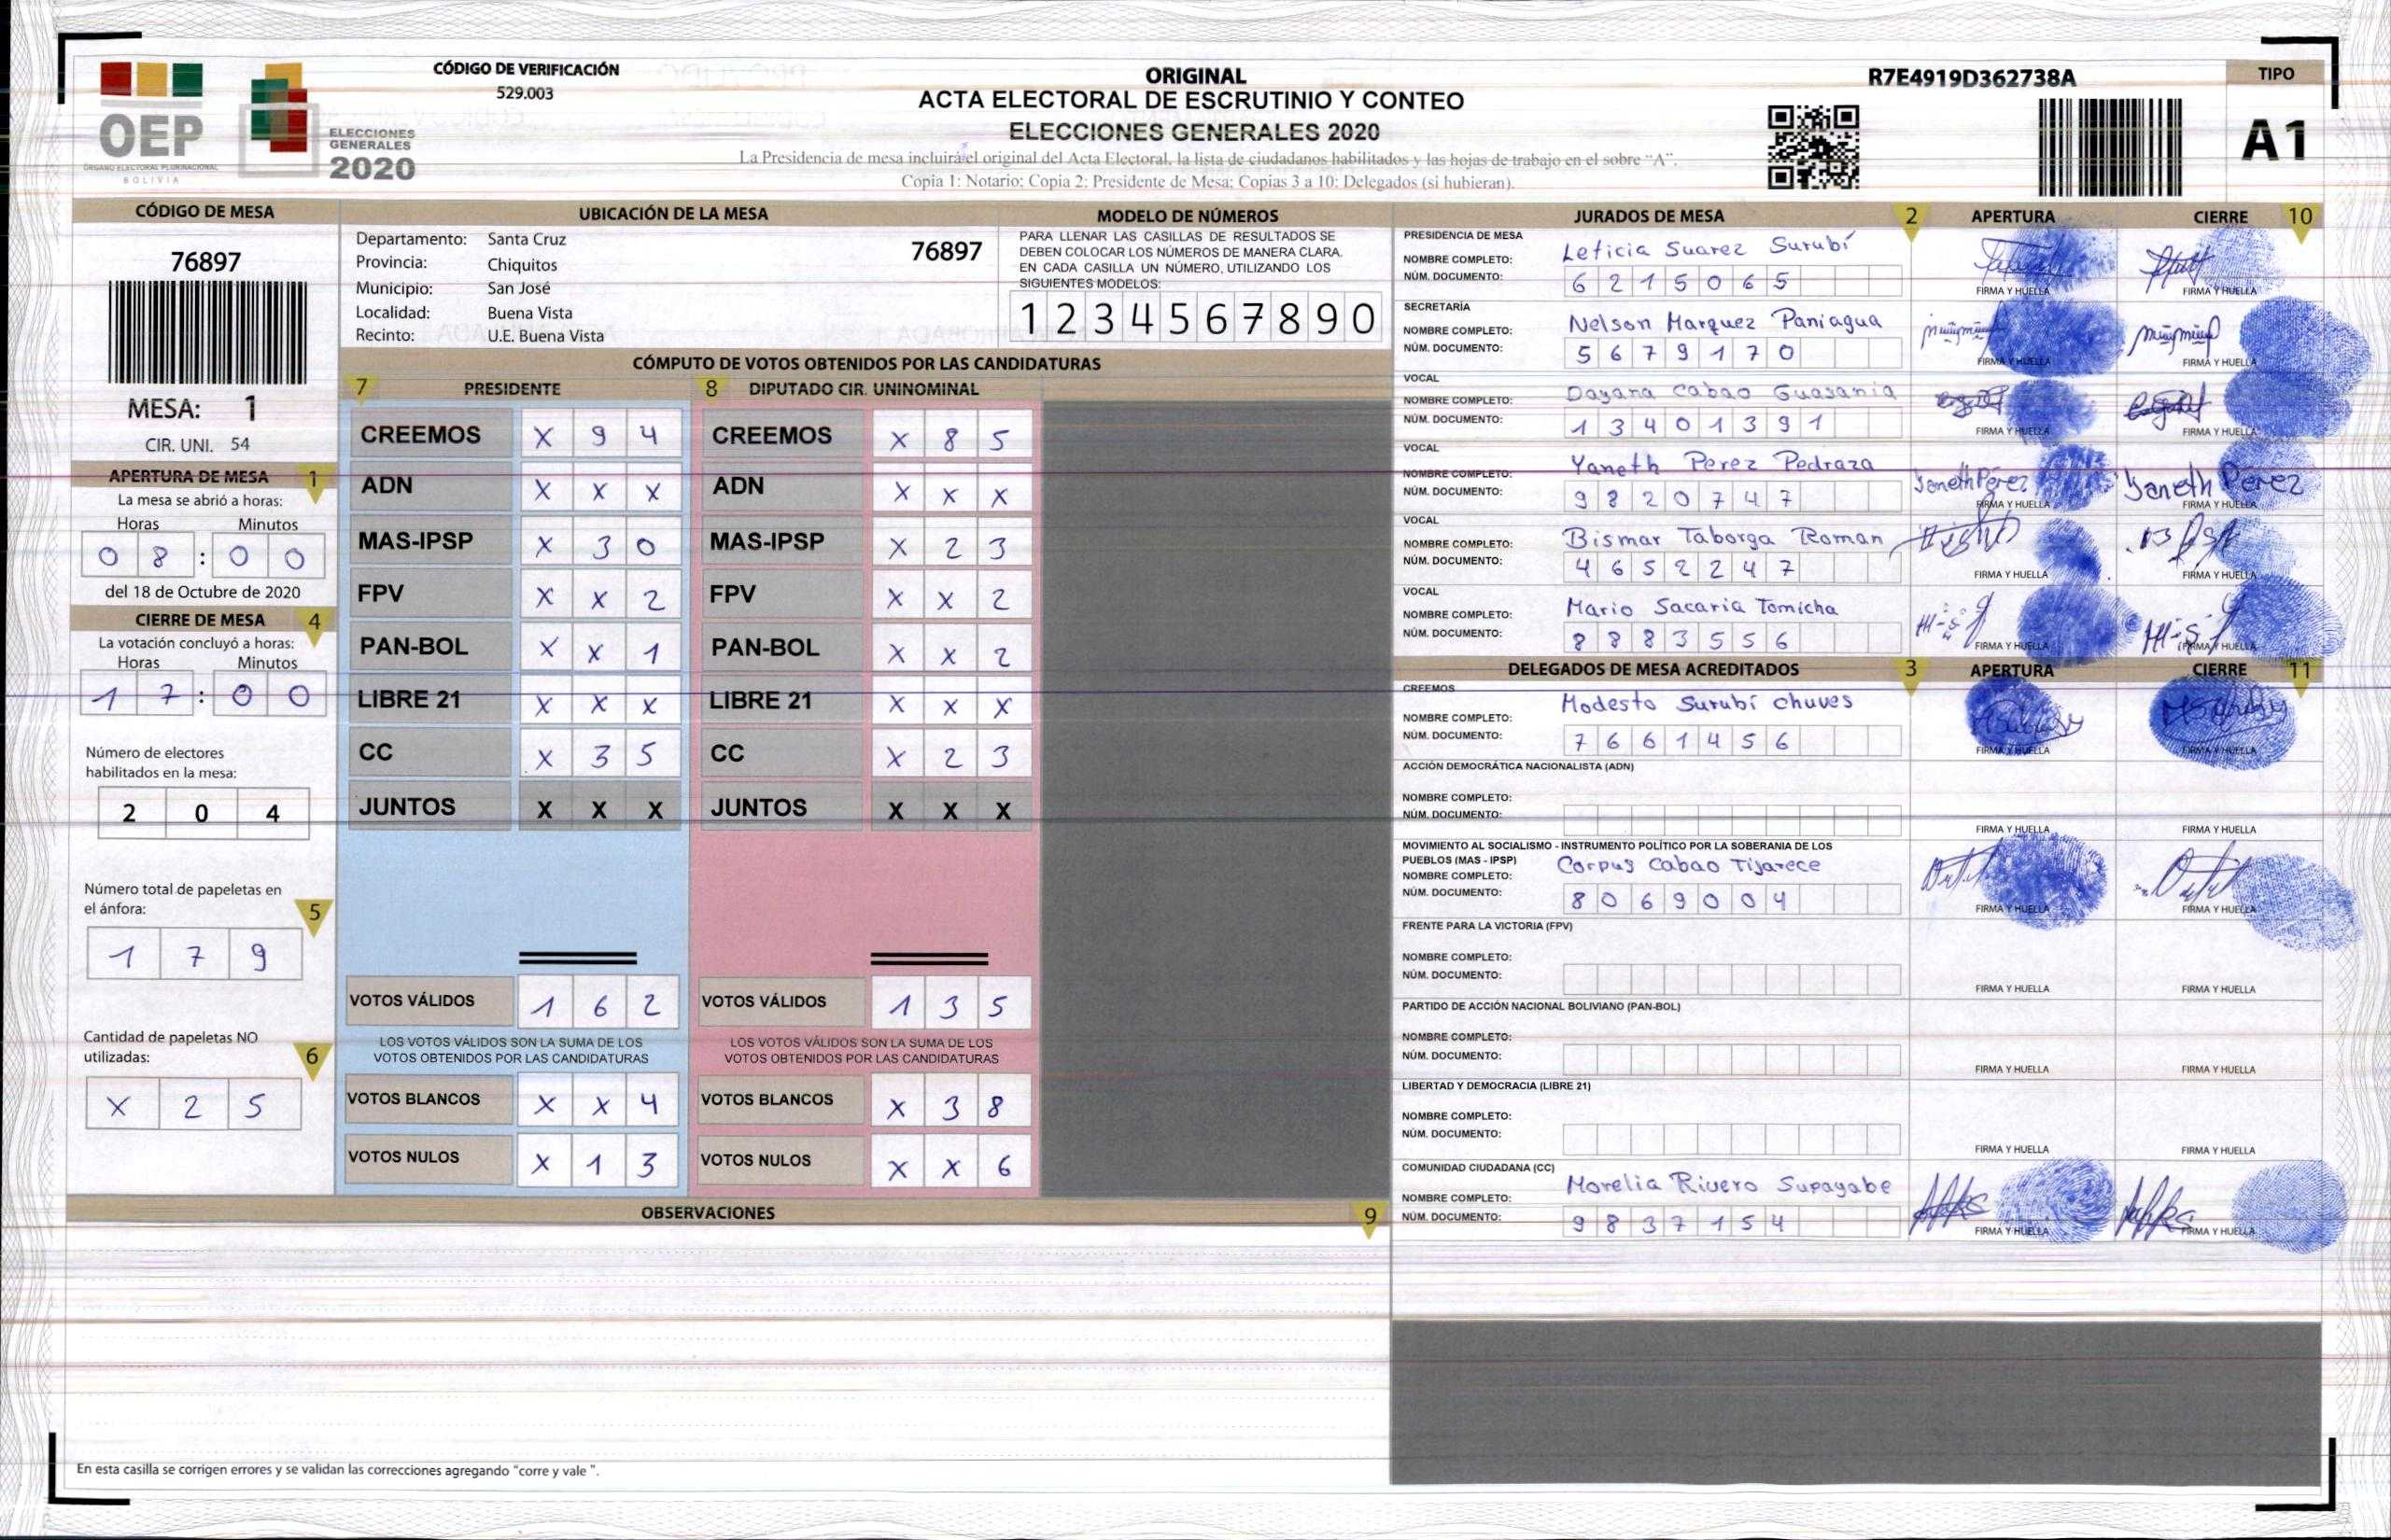 CÓDIGO DE VERIFICACIÓN
529.003
OEP
ÓRGANO ELECTORAL PLURINACIONAL
BOLIVIA
ELECCIONES
GENERALES
2020
ORIGINAL
ACTA ELECTORAL DE ESCRUTINIO Y CONTEO
ELECCIONES GENERALES 2020
La Presidencia de mesa incluirá el original del Acta Electoral, la lista de ciudadanos habilitados y las hojas de trabajo en el sobre "A".
Copia 1: Notario; Copia 2: Presidente de Mesa; Copias 3 a 10: Delegados (si hubieran).
R7E4919D362738A
TIPO
A1
CÓDIGO DE MESA
76897
MESA: 1
CIR. UNI. 54
APERTURA DE MESA 1
La mesa se abrió a horas:
Horas Minutos
0 8 : 0 0
del 18 de Octubre de 2020
CIERRE DE MESA 4
La votación concluyó a horas:
Horas Minutos
1 7 : 0 0
Número de electores
habilitados en la mesa:
2 0 4
Número total de papeletas en
el ánfora: 5
1 7 9
Cantidad de papeletas NO
utilizadas: 6
X 2 5
UBICACIÓN DE LA MESA
Departamento: Santa Cruz
Provincia: Chiquitos
Municipio: San José
Localidad: Buena Vista
Recinto: U.E. Buena Vista
76897
MODELO DE NÚMEROS
PARA LLENAR LAS CASILLAS DE RESULTADOS SE
DEBEN COLOCAR LOS NÚMEROS DE MANERA CLARA.
EN CADA CASILLA UN NÚMERO, UTILIZANDO LOS
SIGUIENTES MODELOS:
1 2 3 4 5 6 7 8 9 0
CÓMPUTO DE VOTOS OBTENIDOS POR LAS CANDIDATURAS
7 PRESIDENTE 8 DIPUTADO CIR. UNINOMINAL
CREEMOS X 9 4 CREEMOS X 8 5
ADN X X X ADN X X X
MAS-IPSP X 3 0 MAS-IPSP X 2 3
FPV X X 2 FPV X X 2
PAN-BOL X X 1 PAN-BOL X X 2
LIBRE 21 X X X LIBRE 21 X X X
CC X 3 5 CC X 2 3
JUNTOS X X X JUNTOS X X X
VOTOS VÁLIDOS 1 6 2 VOTOS VÁLIDOS 1 3 5
LOS VOTOS VÁLIDOS SON LA SUMA DE LOS LOS VOTOS VÁLIDOS SON LA SUMA DE LOS
VOTOS OBTENIDOS POR LAS CANDIDATURAS VOTOS OBTENIDOS POR LAS CANDIDATURAS
VOTOS BLANCOS X X 4 VOTOS BLANCOS X 3 8
VOTOS NULOS X 1 3 VOTOS NULOS X X 6
OBSERVACIONES 9
En esta casilla se corrigen errores y se validan las correcciones agregando "corre y vale ".
JURADOS DE MESA 2 APERTURA CIERRE 10
PRESIDENCIA DE MESA
NOMBRE COMPLETO: Leticia Suarez Surubí
NÚM. DOCUMENTO: 6 2 1 5 0 6 5
FIRMA Y HUELLA FIRMA Y HUELLA
SECRETARÍA
NOMBRE COMPLETO: Nelson Marquez Paniagua
NÚM. DOCUMENTO: 5 6 7 9 1 7 0
FIRMA Y HUELLA FIRMA Y HUELLA
VOCAL
NOMBRE COMPLETO: Dayana Cabao Guasania
NÚM. DOCUMENTO: 1 3 4 0 1 3 9 1
FIRMA Y HUELLA FIRMA Y HUELLA
VOCAL
NOMBRE COMPLETO: Yaneth Perez Pedraza
NÚM. DOCUMENTO: 9 8 2 0 7 4 7
Yaneth Pérez Yaneth Pérez
FIRMA Y HUELLA FIRMA Y HUELLA
VOCAL
NOMBRE COMPLETO: Bismar Taborga Roman
NÚM. DOCUMENTO: 4 6 5 2 2 4 7
FIRMA Y HUELLA FIRMA Y HUELLA
VOCAL
NOMBRE COMPLETO: Mario Sacaria Tomicha
NÚM. DOCUMENTO: 8 8 8 3 5 5 6
FIRMA Y HUELLA FIRMA Y HUELLA
DELEGADOS DE MESA ACREDITADOS 3 APERTURA CIERRE 11
CREEMOS
NOMBRE COMPLETO: Modesto Surubí chuves
NÚM. DOCUMENTO: 7 6 6 1 4 5 6
FIRMA Y HUELLA FIRMA Y HUELLA
ACCIÓN DEMOCRÁTICA NACIONALISTA (ADN)
NOMBRE COMPLETO:
NÚM. DOCUMENTO:
FIRMA Y HUELLA FIRMA Y HUELLA
MOVIMIENTO AL SOCIALISMO - INSTRUMENTO POLÍTICO POR LA SOBERANIA DE LOS
PUEBLOS (MAS - IPSP)
NOMBRE COMPLETO: Corpus Cabao Tijarece
NÚM. DOCUMENTO: 8 0 6 9 0 0 4
FIRMA Y HUELLA FIRMA Y HUELLA
FRENTE PARA LA VICTORIA (FPV)
NOMBRE COMPLETO:
NÚM. DOCUMENTO:
FIRMA Y HUELLA FIRMA Y HUELLA
PARTIDO DE ACCIÓN NACIONAL BOLIVIANO (PAN-BOL)
NOMBRE COMPLETO:
NÚM. DOCUMENTO:
FIRMA Y HUELLA FIRMA Y HUELLA
LIBERTAD Y DEMOCRACIA (LIBRE 21)
NOMBRE COMPLETO:
NÚM. DOCUMENTO:
FIRMA Y HUELLA FIRMA Y HUELLA
COMUNIDAD CIUDADANA (CC)
NOMBRE COMPLETO: Morelia Rivero Supayabe
NÚM. DOCUMENTO: 9 8 3 7 1 5 4
FIRMA Y HUELLA FIRMA Y HUELLA